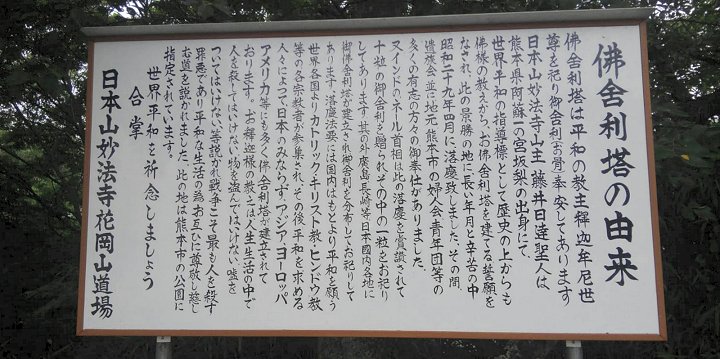 佛舎利塔の由来
佛舎利塔は平和の教主釋迦牟尼世
尊を祀り御舎利(お骨)奉安してあります
日本山妙法寺山主 藤井日達聖人は、
熊本県阿蘇一の宮坂梨の出身にて、
世界平和の指導標として歴史の上からも
佛様の教えから、お佛舎利塔を建てる誓願を
なされ、此の景勝の地に長い年月と辛苦の中
昭和二十九年四月に、落慶致しました、その間、
遺族会並に地元熊本市の婦人会青年団等の
多くの有志の方々の御奉仕がありました、
又インドのネール首相は此の落慶を賞讃されて
十粒の御舎利を贈られ、その中の一粒をお祀り
してあります、其の外、廣島、長崎等、日本国内各地に
御佛舎利塔が建立され御舎利を分布してお祀りして
あります、落慶法要には国内はもとより平和を願う
世界各国よりカトリック・キリスト教・ヒンドウ教
等の各宗教者が参集され、その後、平和を求める
人々によって日本のみならず、アジア・ヨーロッパ、
アメリカ等にも多く佛舎利塔が建立されて
あります。お釋迦様の教えは人生生活の中で
人を殺してはいけない、物を盗んではいけない、嘘を
ついてはいけない、等説かれ戦争こそ最も人を殺す
罪悪であり平和な生活の為お互いに尊敬し慈し
む道を説かれました、此の地は熊本市の公園に
指定されています。
世界平和を祈念しましょう
合掌
日本山妙法寺花岡山道場